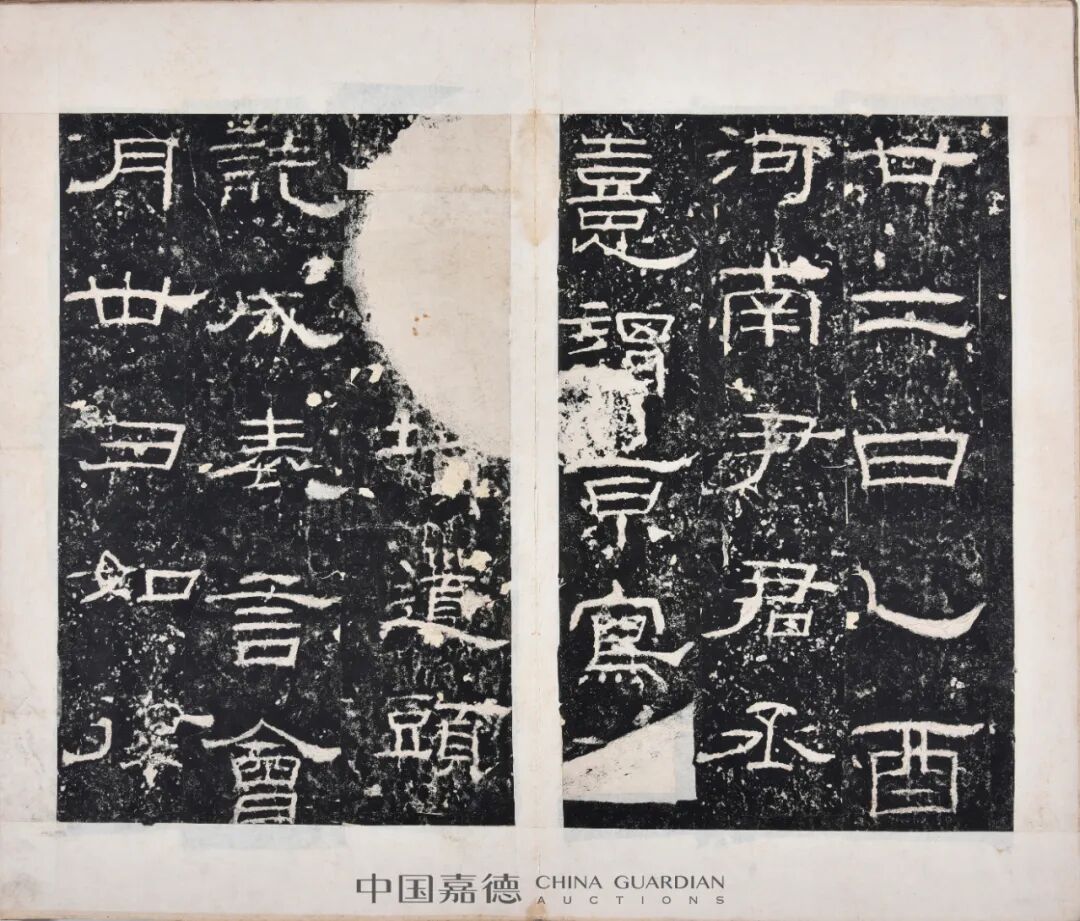 廿二日乙酉
河南尹君丞
憙謂京寫
道頭
訖成表言會
月卅日如律
中国嘉德 CHINA GUARDIAN
AUCTIONS